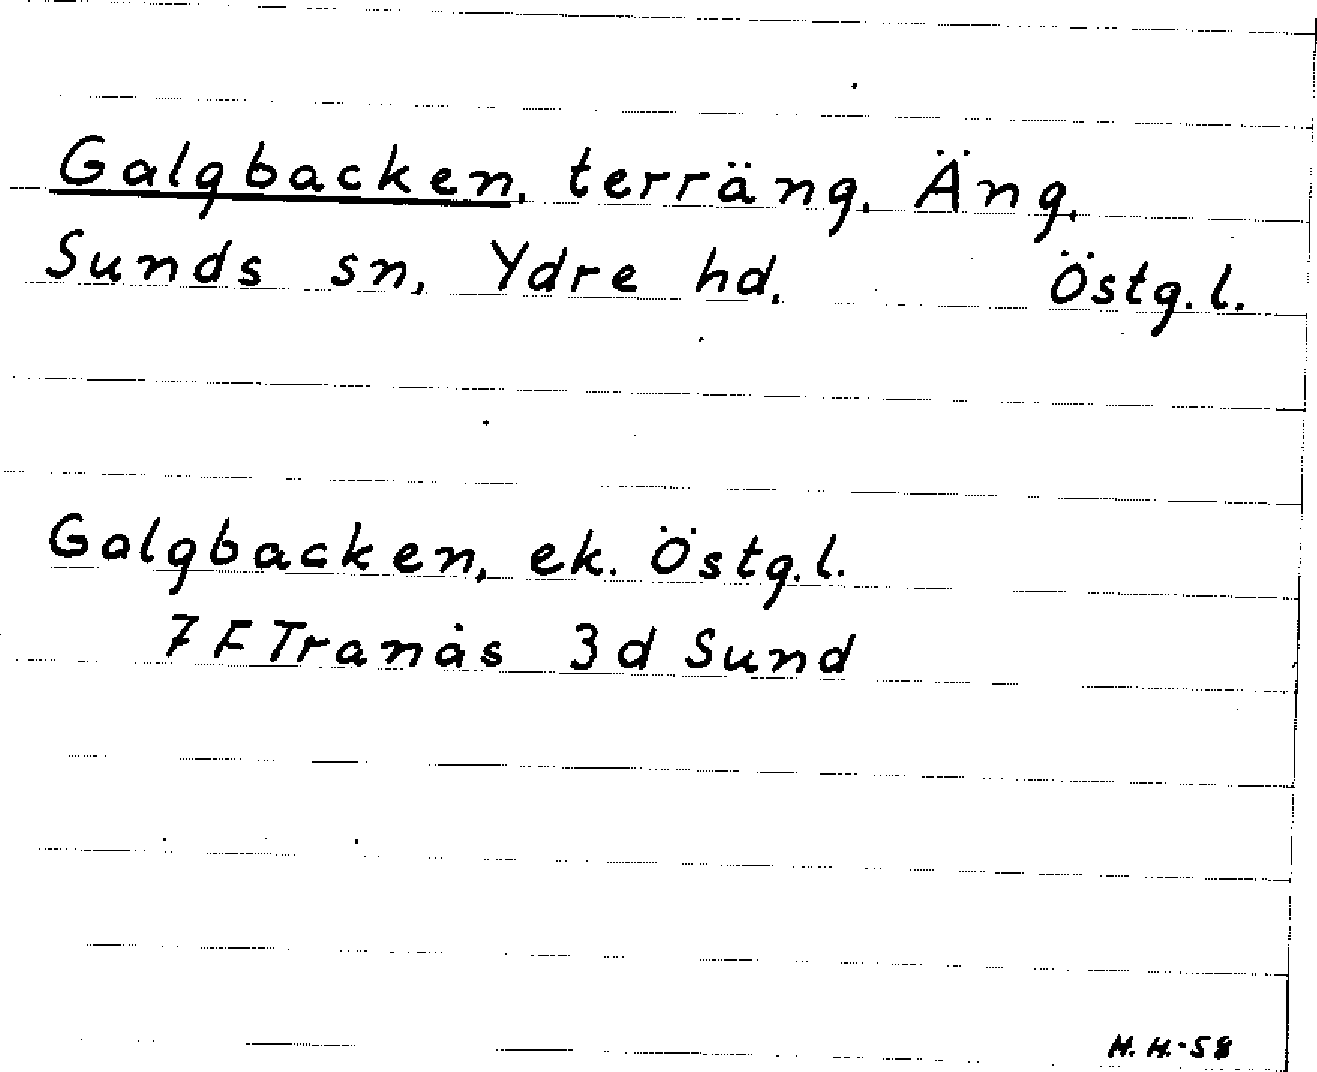 Galgbacken, terräng. Äng.
Sunds sn, Ydre hd. Östg.l.
Galgbacken, ek. Östg.l.
7 F Tranås 3 d Sund
H. H.-58